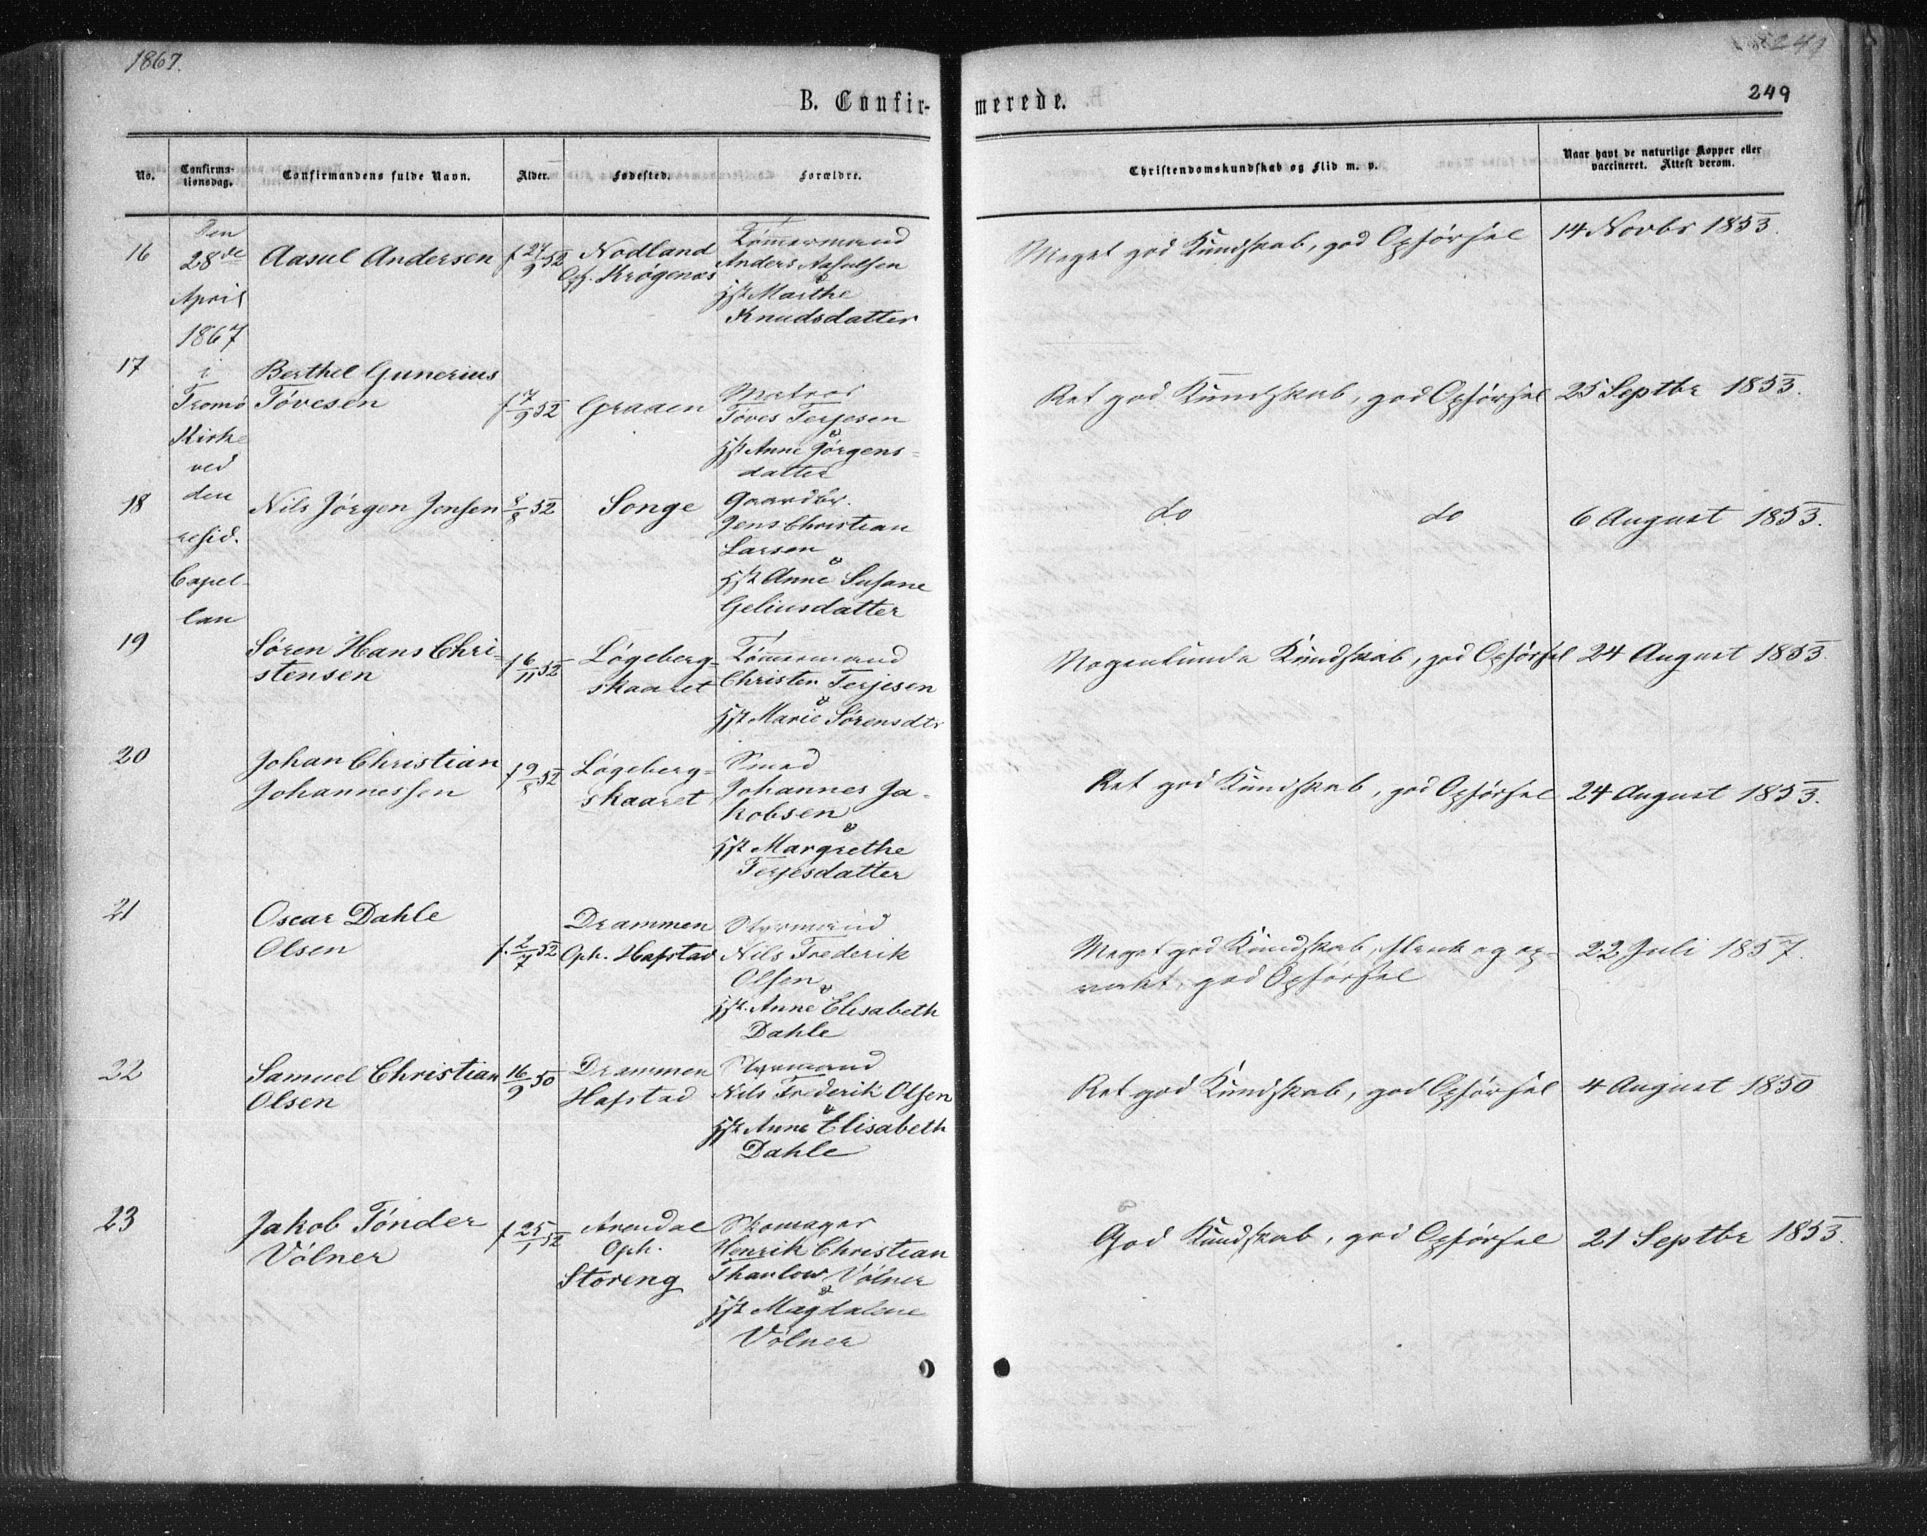 1867.
249
B. Confirmerede.
No.
Confirmationsdag.
Confirmandens fulde Navn.
Alder.
Fødested.
Forældre.
Christendomskundskab og Flid m. v.
Naar havt de naturlige Kopper eller vaccineret. Attest derom.
Den
28de
April
1867
i
Tromø
Kirke
ved
den
resid.
Capel-
lan
16
Aasul Andersen
f 27/9 52
Nodland
Oph. Krøgenæs
Tømmermand
Anders Aasulsen
&
Hst Marthe
Knudsdatter
Meget god Kundskab, god Opførsel
14 Novbr 1853.
17
Berthel Gunerius
Tøvesen
f 7/9 52
Graaen
Matros
Toves Terjesen
&
Hst Anne Jørgens=
datter
Ret god Kundskab, god Opførsel
25 Septbr 1853.
18
Nils Jørgen Jensen
8/8 52
Songe
Gaardbr.
Jens Christian
Larsen
&
Hst Anne Susane
Geliusdatter
do do
6 August 1853.
19
Søren Hans Chri-
stensen
f 6/11 52
Løgeberg-
skaaret
Tømmermand
Christen Terjesen
&
Hst Marie Sørensdtr
Nogenlunde Kundskab, god Opførsel
24 August 1853.
20
Johan Christian
Johannessen
f 9/8 52
Løgeberg=
skaaret
Smed
Johannes Ja-
kobsen
&
Hst Margrethe
Terjesdatter
Ret god Kundskab, god Opførsel
24 August 1853.
21
Oscar Dahle
Olsen
f. 2/7 52
Drammen
Oph. Hafstad
Styrmand
Nils Frederik
Olsen
&
Hst. Anne Elisabeth
Dahle
Meget god Kundskab, flink og op-
vakt, god Opførsel
22 Juli 1857.
22
Samuel Christian
Olsen
16/9 50
Drammen
Hafstad
Styrmand
Nils Frederik Olsen
&
Hst Anne Elisabeth
Dahle
Ret god Kundskab, god Opførsel
4 August 1850
23
Jakob Tønder
Vølner
f 25/1 52
Arendal
Oph.
Storeng
Skomager
Henrik Christian
Thaulow Vølner
&
Hst Magdalene
Vølner
God Kundskab, god Opførsel
21 Septbr 1853.